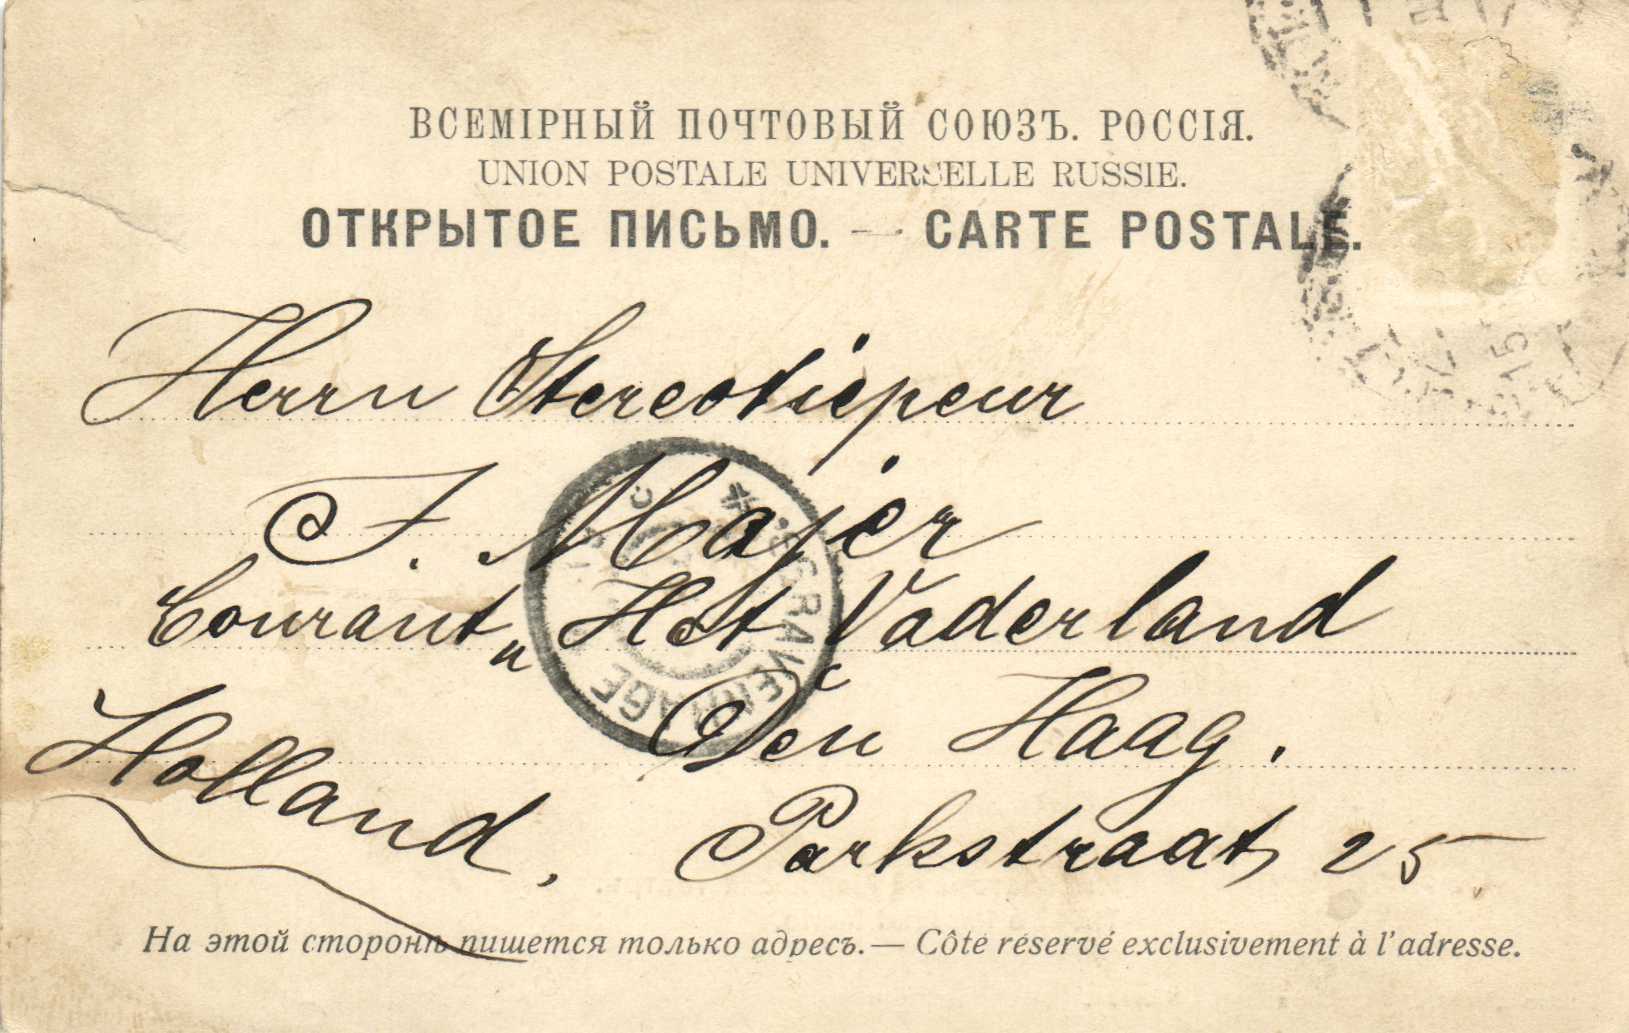 ВСЕМІРНЫЙ ПОЧТОВЫЙ СОЮЗЪ. РОССІЯ.
UNION POSTALE UNIVERSELLE RUSSIE.
ОТКРЫТОЕ ПИСЬМО. — CARTE POSTALE.
Herrn Stereotiepeur
J. Majer
Courant „Het Vaderland
Den Haag.
Holland, Parkstraat 25
'S GRAVENHAGE
На этой сторонѣ пишется только адресъ.— Côté réservé exclusivement à l'adresse.